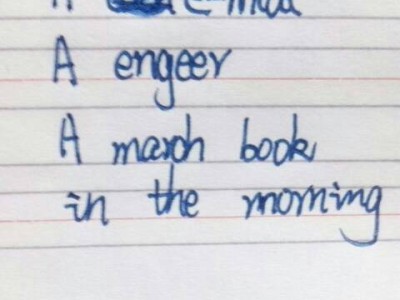 A engeer
A march book
in the morning